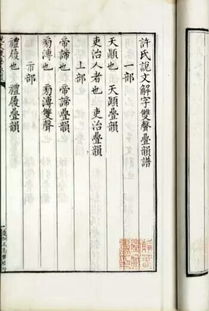 許氏說文解字雙聲疊韻譜
一部
天顚也 天顚疊韻
吏治人者也 吏治疊韻
上部
帝諦也 帝諦疊韻
旁溥也 旁溥雙聲
示部
禮履也 禮履疊韻